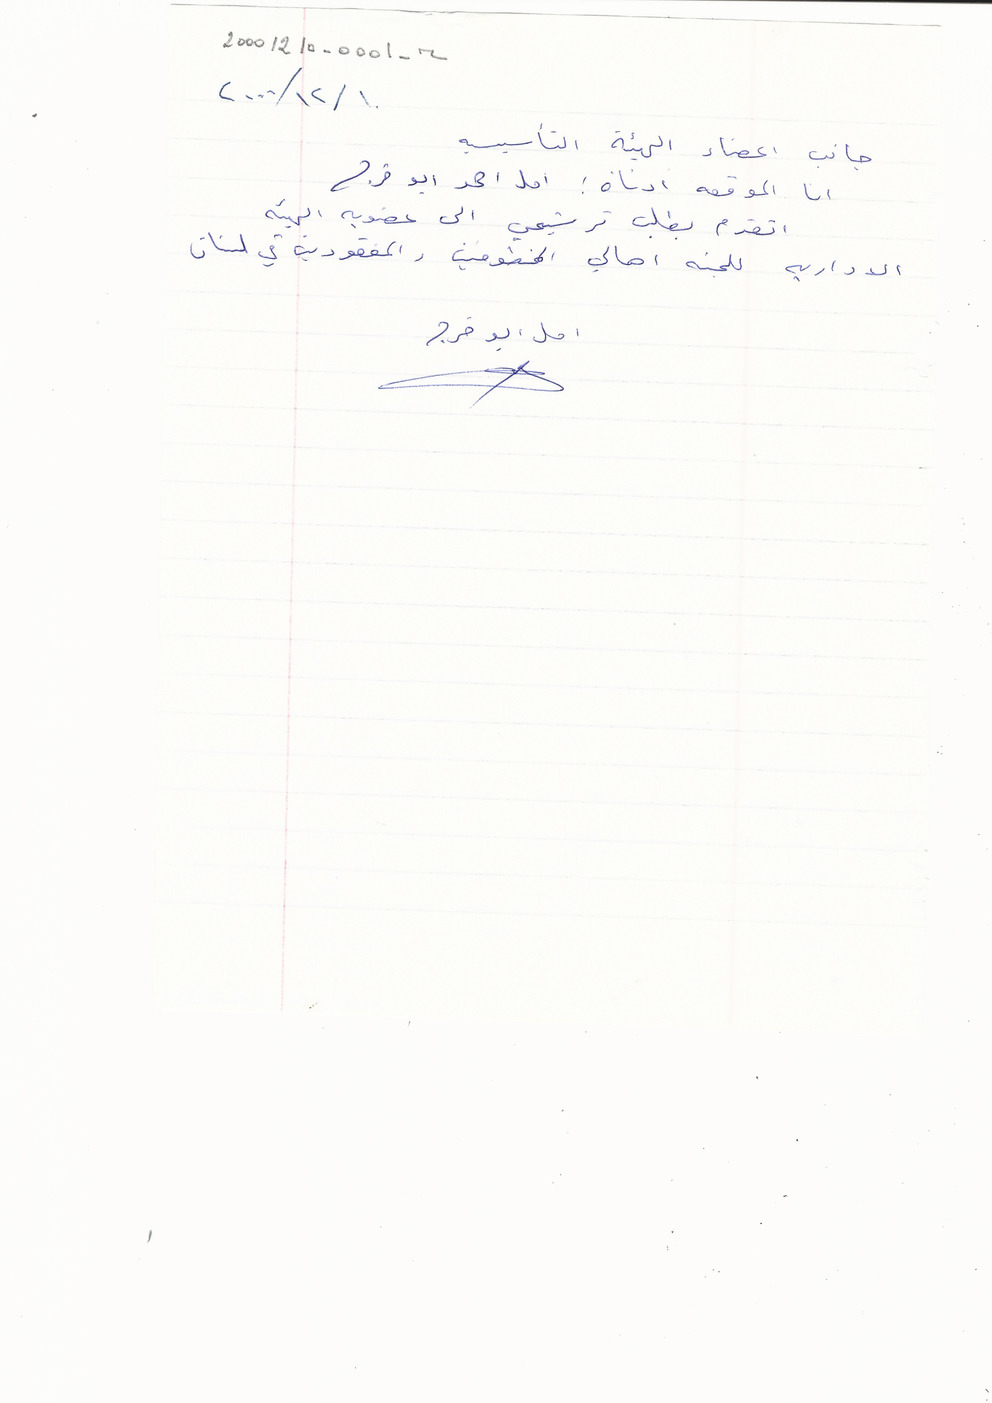 20001210-0001-م
٢٠٠٠/١٢/١٠
جانب اعضاء الهيئة التأسيسيه
انا الموقعه ادناه : امل احمد ابو فرج
اتقدم بطلب ترشيحي الى عضويه الهيئه
الاداريه للجنه اهالي المخطوفين والمفقودين في لبنان
امل ابو فرج